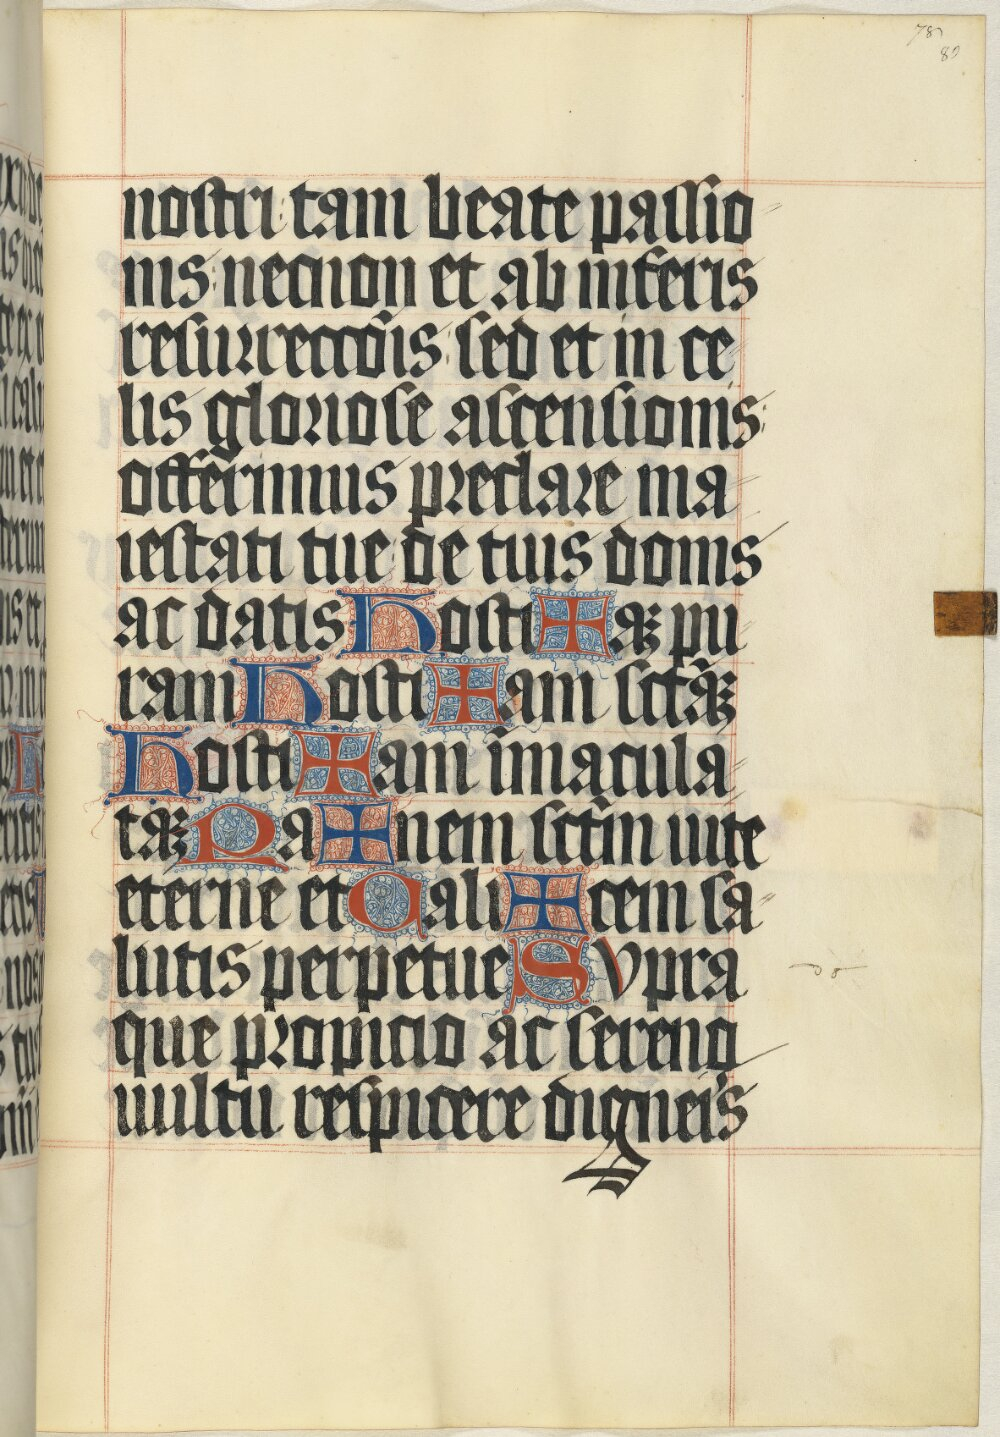 78
80
nostri: tam beate passio
nis: necnon et ab inferis
resurrecciōis: sed et in ce
lis gloriose ascensionis:
offerimus preclare ma
iestati tue de tuis donis
ac datis Hosti+aꝫ pu
ram Hosti+am sctāꝫ
Hosti+am īmacula
taꝫ Pa+nem sctm̄ uite
eterne et Cali+cem sa
lutis perpetue Supra
que propicio ac sereno
uultu respicere digneris